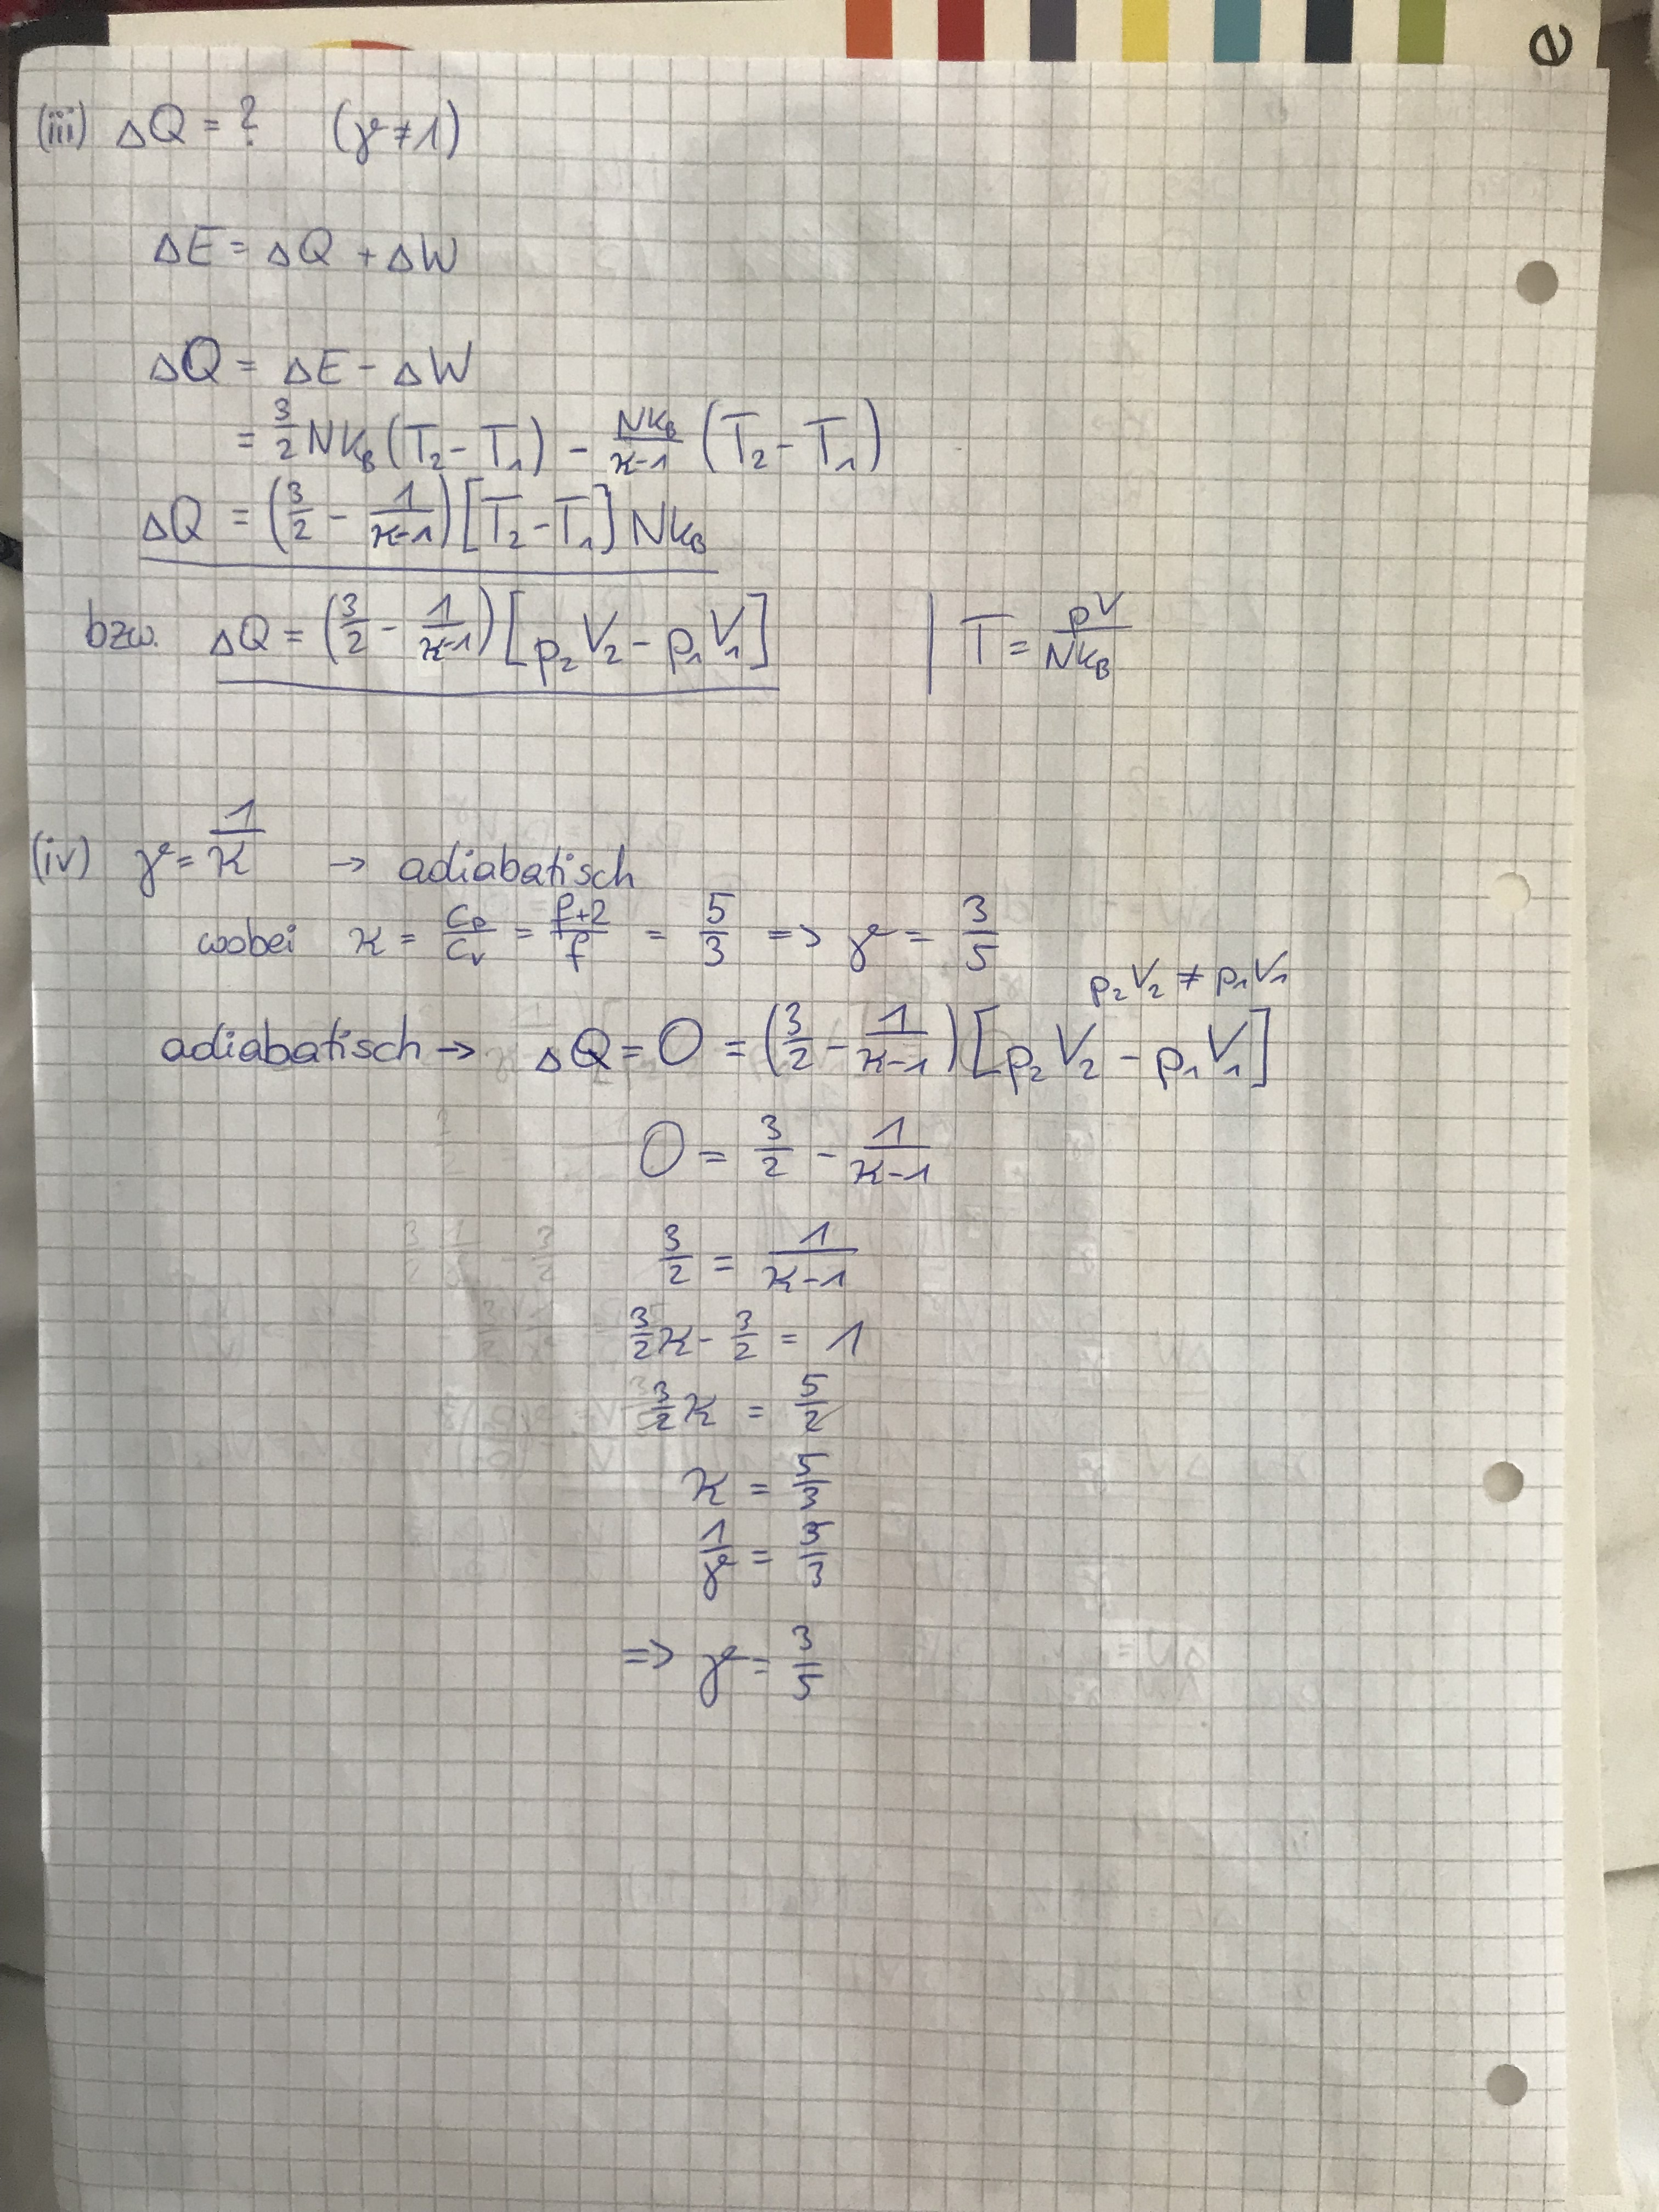 e
(iii) ΔQ = ? (γ ≠ 1)
ΔE = ΔQ + ΔW
ΔQ = ΔE - ΔW
= 3/2 Nk_B (T_2 - T_1) - Nk_B/(κ-1) (T_2 - T_1)
ΔQ = (3/2 - 1/(κ-1)) [T_2 - T_1] Nk_B
bzw. ΔQ = (3/2 - 1/(κ-1)) [p_2 V_2 - p_1 V_1] | T = pV/(Nk_B)
(iv) γ = 1/κ → adiabatisch
wobei κ = C_p/C_v = (f+2)/f = 5/3 => γ = 3/5
p_2 V_2 ≠ p_1 V_1
adiabatisch → ΔQ = 0 = (3/2 - 1/(κ-1)) [p_2 V_2 - p_1 V_1]
0 = 3/2 - 1/(κ-1)
3/2 = 1/(κ-1)
3/2 κ - 3/2 = 1
3/2 κ = 5/2
κ = 5/3
1/γ = 5/3
=> γ = 3/5